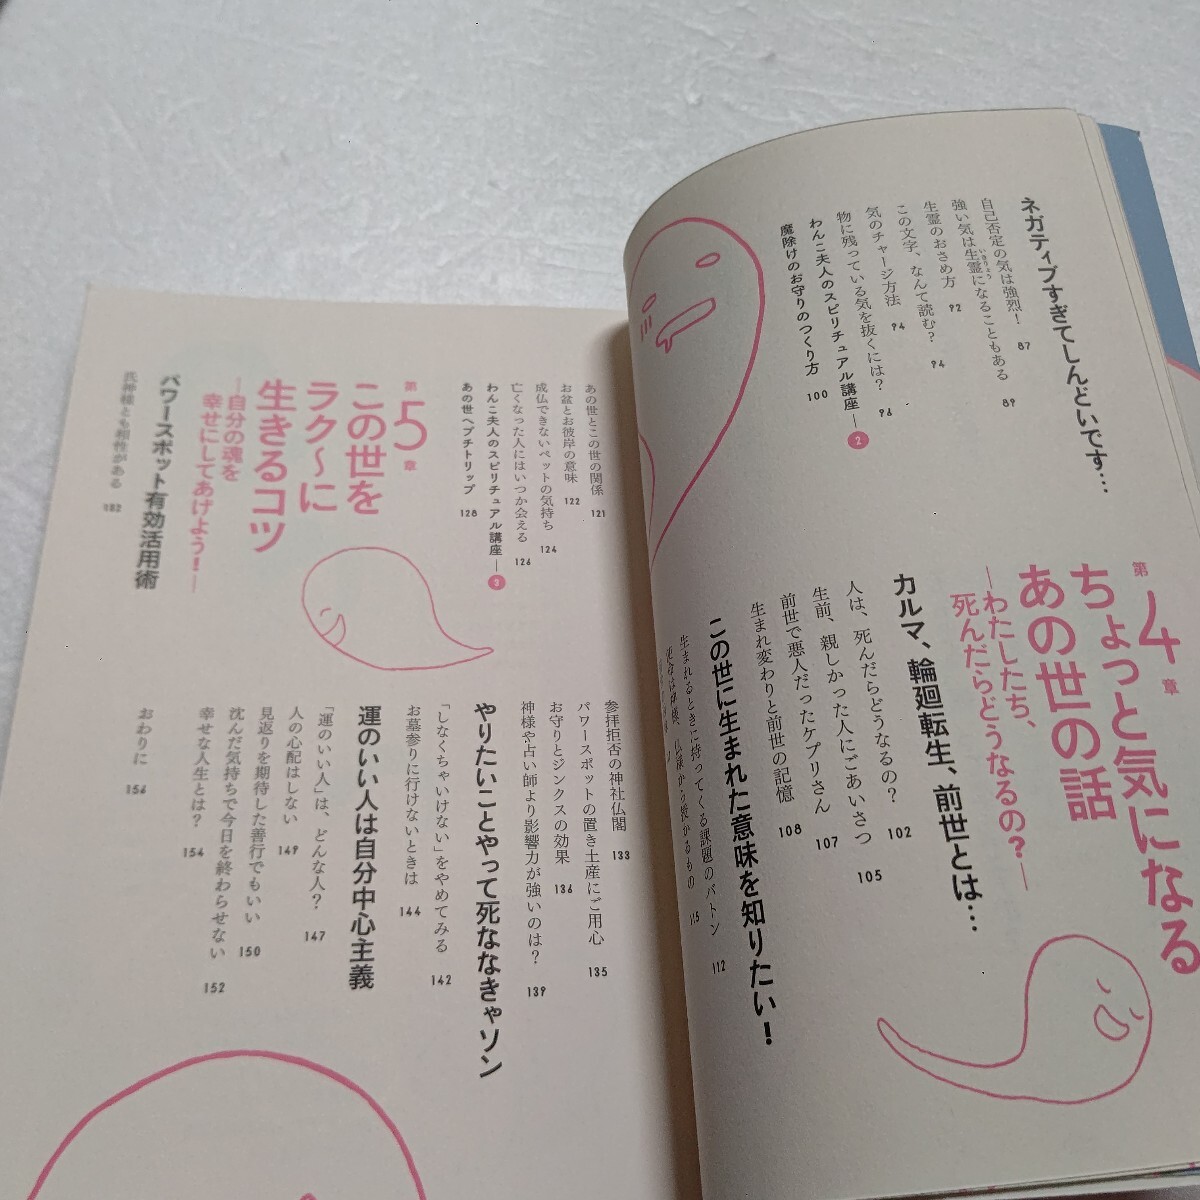 ネガティブすぎてしんどいです…
自己否定の気は強烈！ 87
強い気は生霊になることもある 89
いきりょう
生霊のおさめ方 92
この文字、なんて読む？ 94
気のチャージ方法 94
物に残っている気を抜くには？ 96
わんこ夫人のスピリチュアル講座―2
魔除けのお守りのつくり方 100
第4章
ちょっと気になる
あの世の話
―わたしたち、
死んだらどうなるの？―
カルマ、輪廻転生、前世とは…
人は、死んだらどうなるの？ 102
生前、親しかった人にごあいさつ 105
前世で悪人だったケプリさん 107
生まれ変わりと前世の記憶 108
この世に生まれた意味を知りたい！
生まれるときに持ってくる課題のバトン 112
使命は神様、仏様から授かるもの 115
あの世とこの世の関係 121
お盆とお彼岸の意味 122
成仏できないペットの気持ち 124
亡くなった人にはいつか会える 126
わんこ夫人のスピリチュアル講座―3
あの世へプチトリップ 128
第5章
この世を
ラク〜に
生きるコツ
―自分の魂を
幸せにしてあげよう！―
パワースポット有効活用術
氏神様とも相性がある 132
参拝拒否の神社仏閣 133
パワースポットの置き土産にご用心 135
お守りとジンクスの効果 136
神様や占い師より影響力が強いのは？ 139
やりたいことやって死ななきゃソン
「しなくちゃいけない」をやめてみる 142
お墓参りに行けないときは 144
運のいい人は自分中心主義
「運のいい人」は、どんな人？ 147
人の心配はしない 149
見返りを期待した善行でもいい 150
沈んだ気持ちで今日を終わらせない 152
幸せな人生とは？ 154
おわりに 156